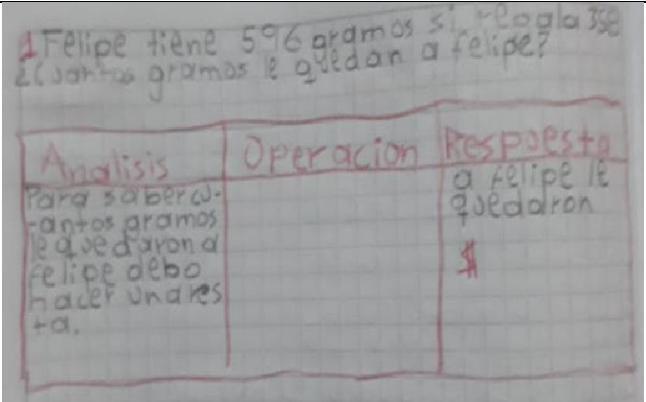 1 Felipe tiene 596 gramos si reogla 35e
¿Cuantos gramos le quedan a felipe?
Analisis
Operacion
Respuesta
Para saber cu-
-antos gramos
le quedaron a
felipe debo
hacer una res
-ta.
a felipe le
quedaron
$